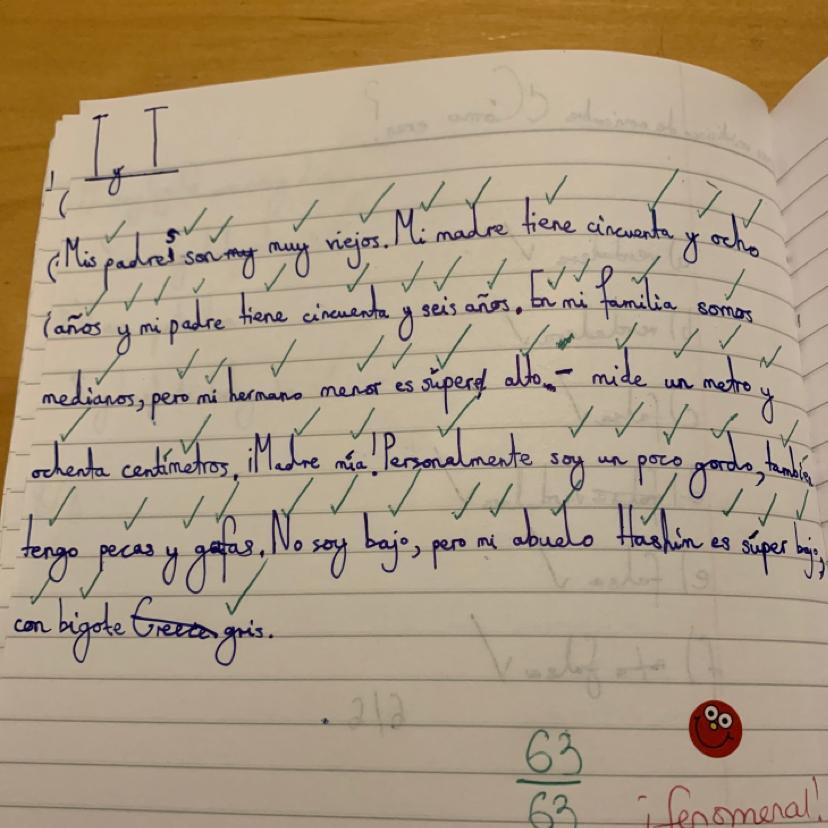 I y I
¡Mis padres son my muy viejos. Mi madre tiene cincuenta y ocho
años y mi padre tiene cincuenta y seis años. En mi familia somos
medianos, pero mi hermano menor es súper alto. - mide un metro y
ochenta centímetros. ¡Madre mía! Personalmente soy un poco gordo, también
tengo pecas y gafas. No soy bajo, pero mi abuelo Hashin es súper bajo,
con bigote Greece gris.
63
63
¡fenomenal!